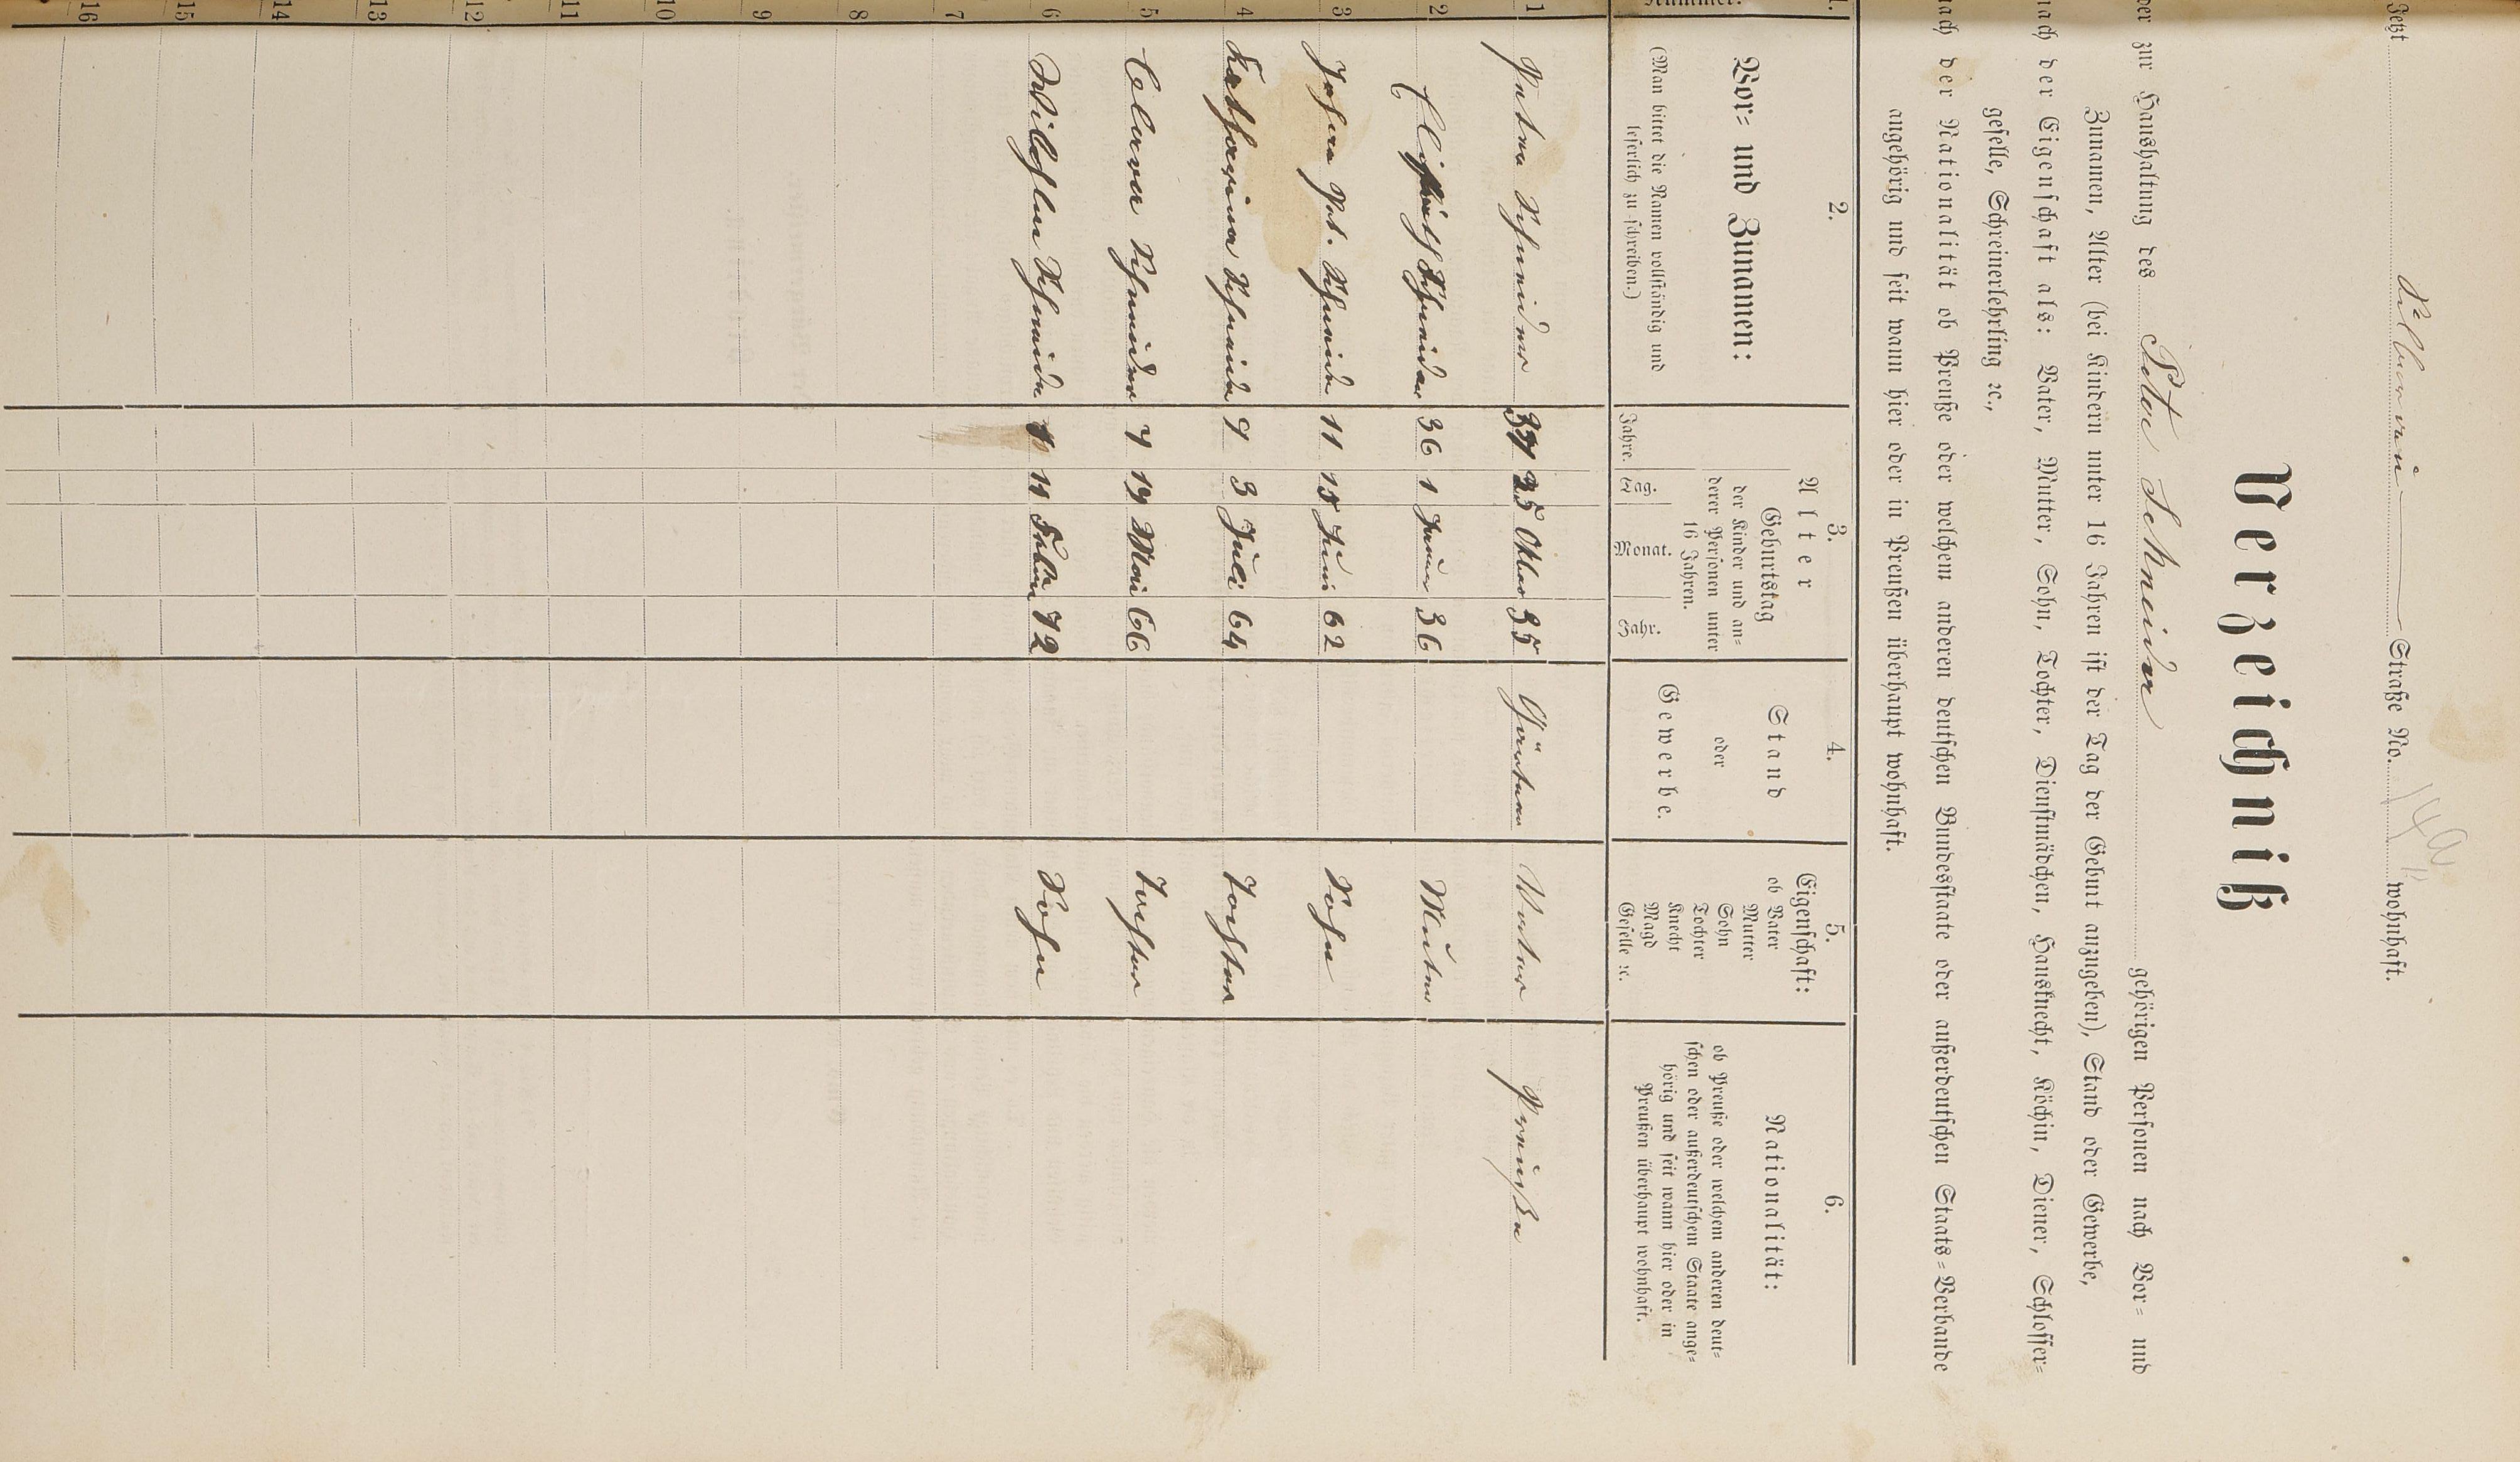 Jetzt Straße No. 149 wohnhaft.
Verzeichniß
der zur Haushaltung des Peter Schneider gehörigen Personen nach Vor- und
Zunamen, Alter (bei Kindern unter 16 Jahren ist der Tag der Geburt anzugeben), Stand oder Gewerbe,
nach der Eigenschaft als: Vater, Mutter, Sohn, Tochter, Dienstmädchen, Hausknecht, Köchin, Diener, Schlosser-
geselle, Schreinerlehrling ꝛc.,
nach der Nationalität ob Preuße oder welchem anderen deutschen Bundesstaate oder außerdeutschen Staats-Verbande
angehörig und seit wann hier oder in Preußen überhaupt wohnhaft.
1. 2. 3. 4. 5. 6.
Nummer.
Vor- und Zunamen:
(Man bittet die Namen vollständig und
leserlich zu schreiben.)
Alter
Jahre.
Geburtstag
der Kinder und an-
derer Personen unter
16 Jahren.
Tag. Monat. Jahr.
Stand
oder
Gewerbe.
Eigenschaft:
ob Vater
Mutter
Sohn
Tochter
Knecht
Magd
Geselle ꝛc.
Nationalität:
ob Preuße oder welchem anderen deut-
schen oder außerdeutschem Staate ange-
hörig und seit wann hier oder in
Preußen überhaupt wohnhaft.
1 Peter Schneider 37 25 Oktber 35 Gärtner Vater Preußen
2 Elisabeth Schneider 36 1 Januar 36 Mutter
3 Johann Schneider 11 15 Juni 62 Sohn
4 Katharina Schneider 9 3 Juli 64 Tochter
5 Clara Schneider 7 19 Mai 66 Tochter
6 Wilhelm Schneider 1 11 Febru 72 Sohn
7
8
9
10
11
12
13
14
15
16